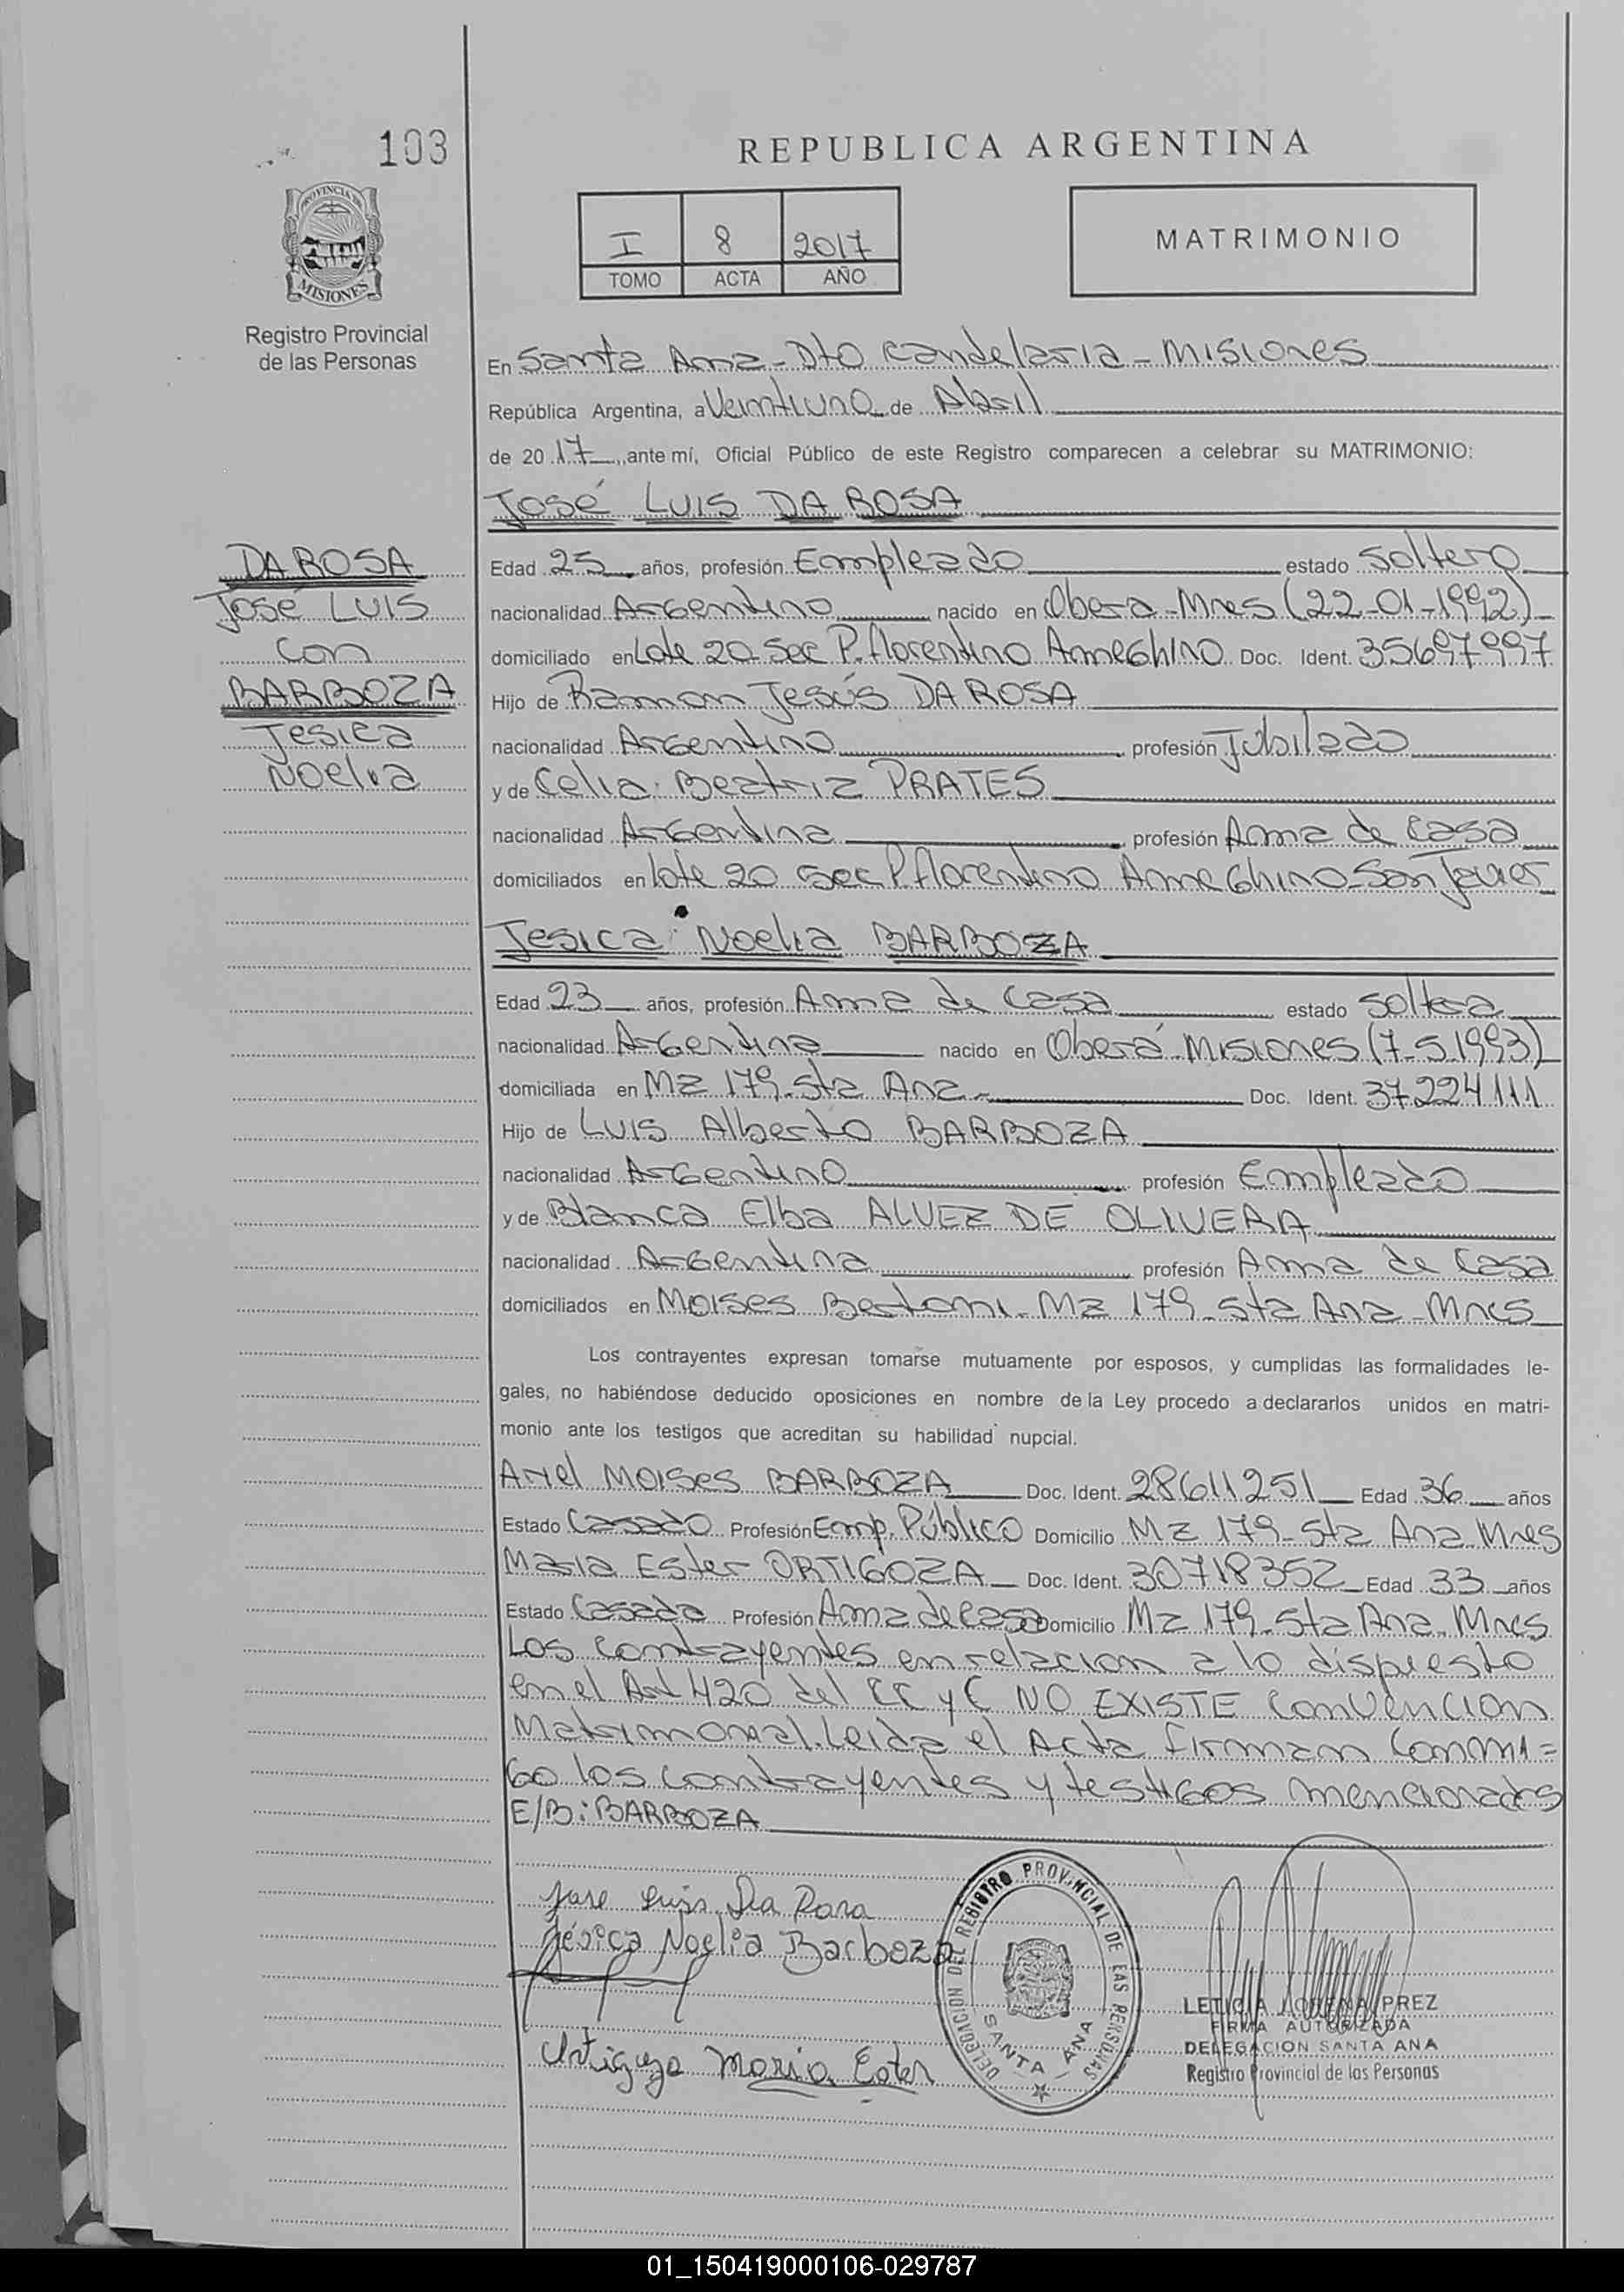 103
REPUBLICA ARGENTINA
PROVINCIA DE
MISIONES
Registro Provincial
de las Personas
I 8 2017
TOMO ACTA AÑO
MATRIMONIO
En Santa Ana - Dto Candelaria - Misiones
República Argentina, a Veintiuno de Abril
de 20 17, ante mí, Oficial Público de este Registro comparecen a celebrar su MATRIMONIO:
José LUIS DA ROSA
DA ROSA
José LUIS
con
BARBOZA
Jesica
Noelia
Edad 25 años, profesión Empleado estado Soltero
nacionalidad Argentino nacido en Obera - Mnes (22-01-1992)
domiciliado en Lote 20 Sec P. florentino AmeGhino Doc. Ident. 35697997
Hijo de Ramon Jesús DA ROSA
nacionalidad Argentino profesión Jubilado
y de Celia Beatriz PRATES
nacionalidad Argentina profesión Ama de Casa
domiciliados en lote 20 Sec P. florentino AmeGhino - San Javier
Jesica Noelia BARBOZA
Edad 23 años, profesión Ama de Casa estado Soltera
nacionalidad Argentina nacido en Oberá - Misiones (7-5-1993)
domiciliada en Mz 179 - Sta Ana - Doc. Ident. 37224111
Hijo de LUIS Alberto BARBOZA
nacionalidad Argentino profesión Empleado
y de Blanca Elba ALVEZ DE OLIVERA
nacionalidad Argentina profesión Ama de Casa
domiciliados en Moises Bertoni - Mz 179 - Sta Ana - Mnes
Los contrayentes expresan tomarse mutuamente por esposos, y cumplidas las formalidades le-
gales, no habiéndose deducido oposiciones en nombre de la Ley procedo a declararlos unidos en matri-
monio ante los testigos que acreditan su habilidad nupcial.
Ariel MOISES BARBOZA Doc. Ident. 28611251 Edad 36 años
Estado Casado Profesión Emp. Público Domicilio Mz 179 - Sta Ana Mnes
Maria Ester ORTIGOZA Doc. Ident. 30718352 Edad 33 años
Estado Casada Profesión Ama de Casa Domicilio Mz 179 - Sta Ana - Mnes
Los contrayentes en relacion a lo dispuesto
en el Art 420 del CC y C NO EXISTE Convencion
Matrimonial. Leida el Acta firman Conmi=
Go los contrayentes y testigos mencionados
E/B: BARBOZA
Jose Luis Da Rosa
Jésica Noelia Barboza
Ortigoza Maria Ester
DELEGACION DEL REGISTRO PROVINCIAL DE LAS PERSONAS
SANTA ANA
LETICIA LORENA PREZ
FIRMA AUTORIZADA
DELEGACION SANTA ANA
Registro Provincial de las Personas
01_150419000106-029787